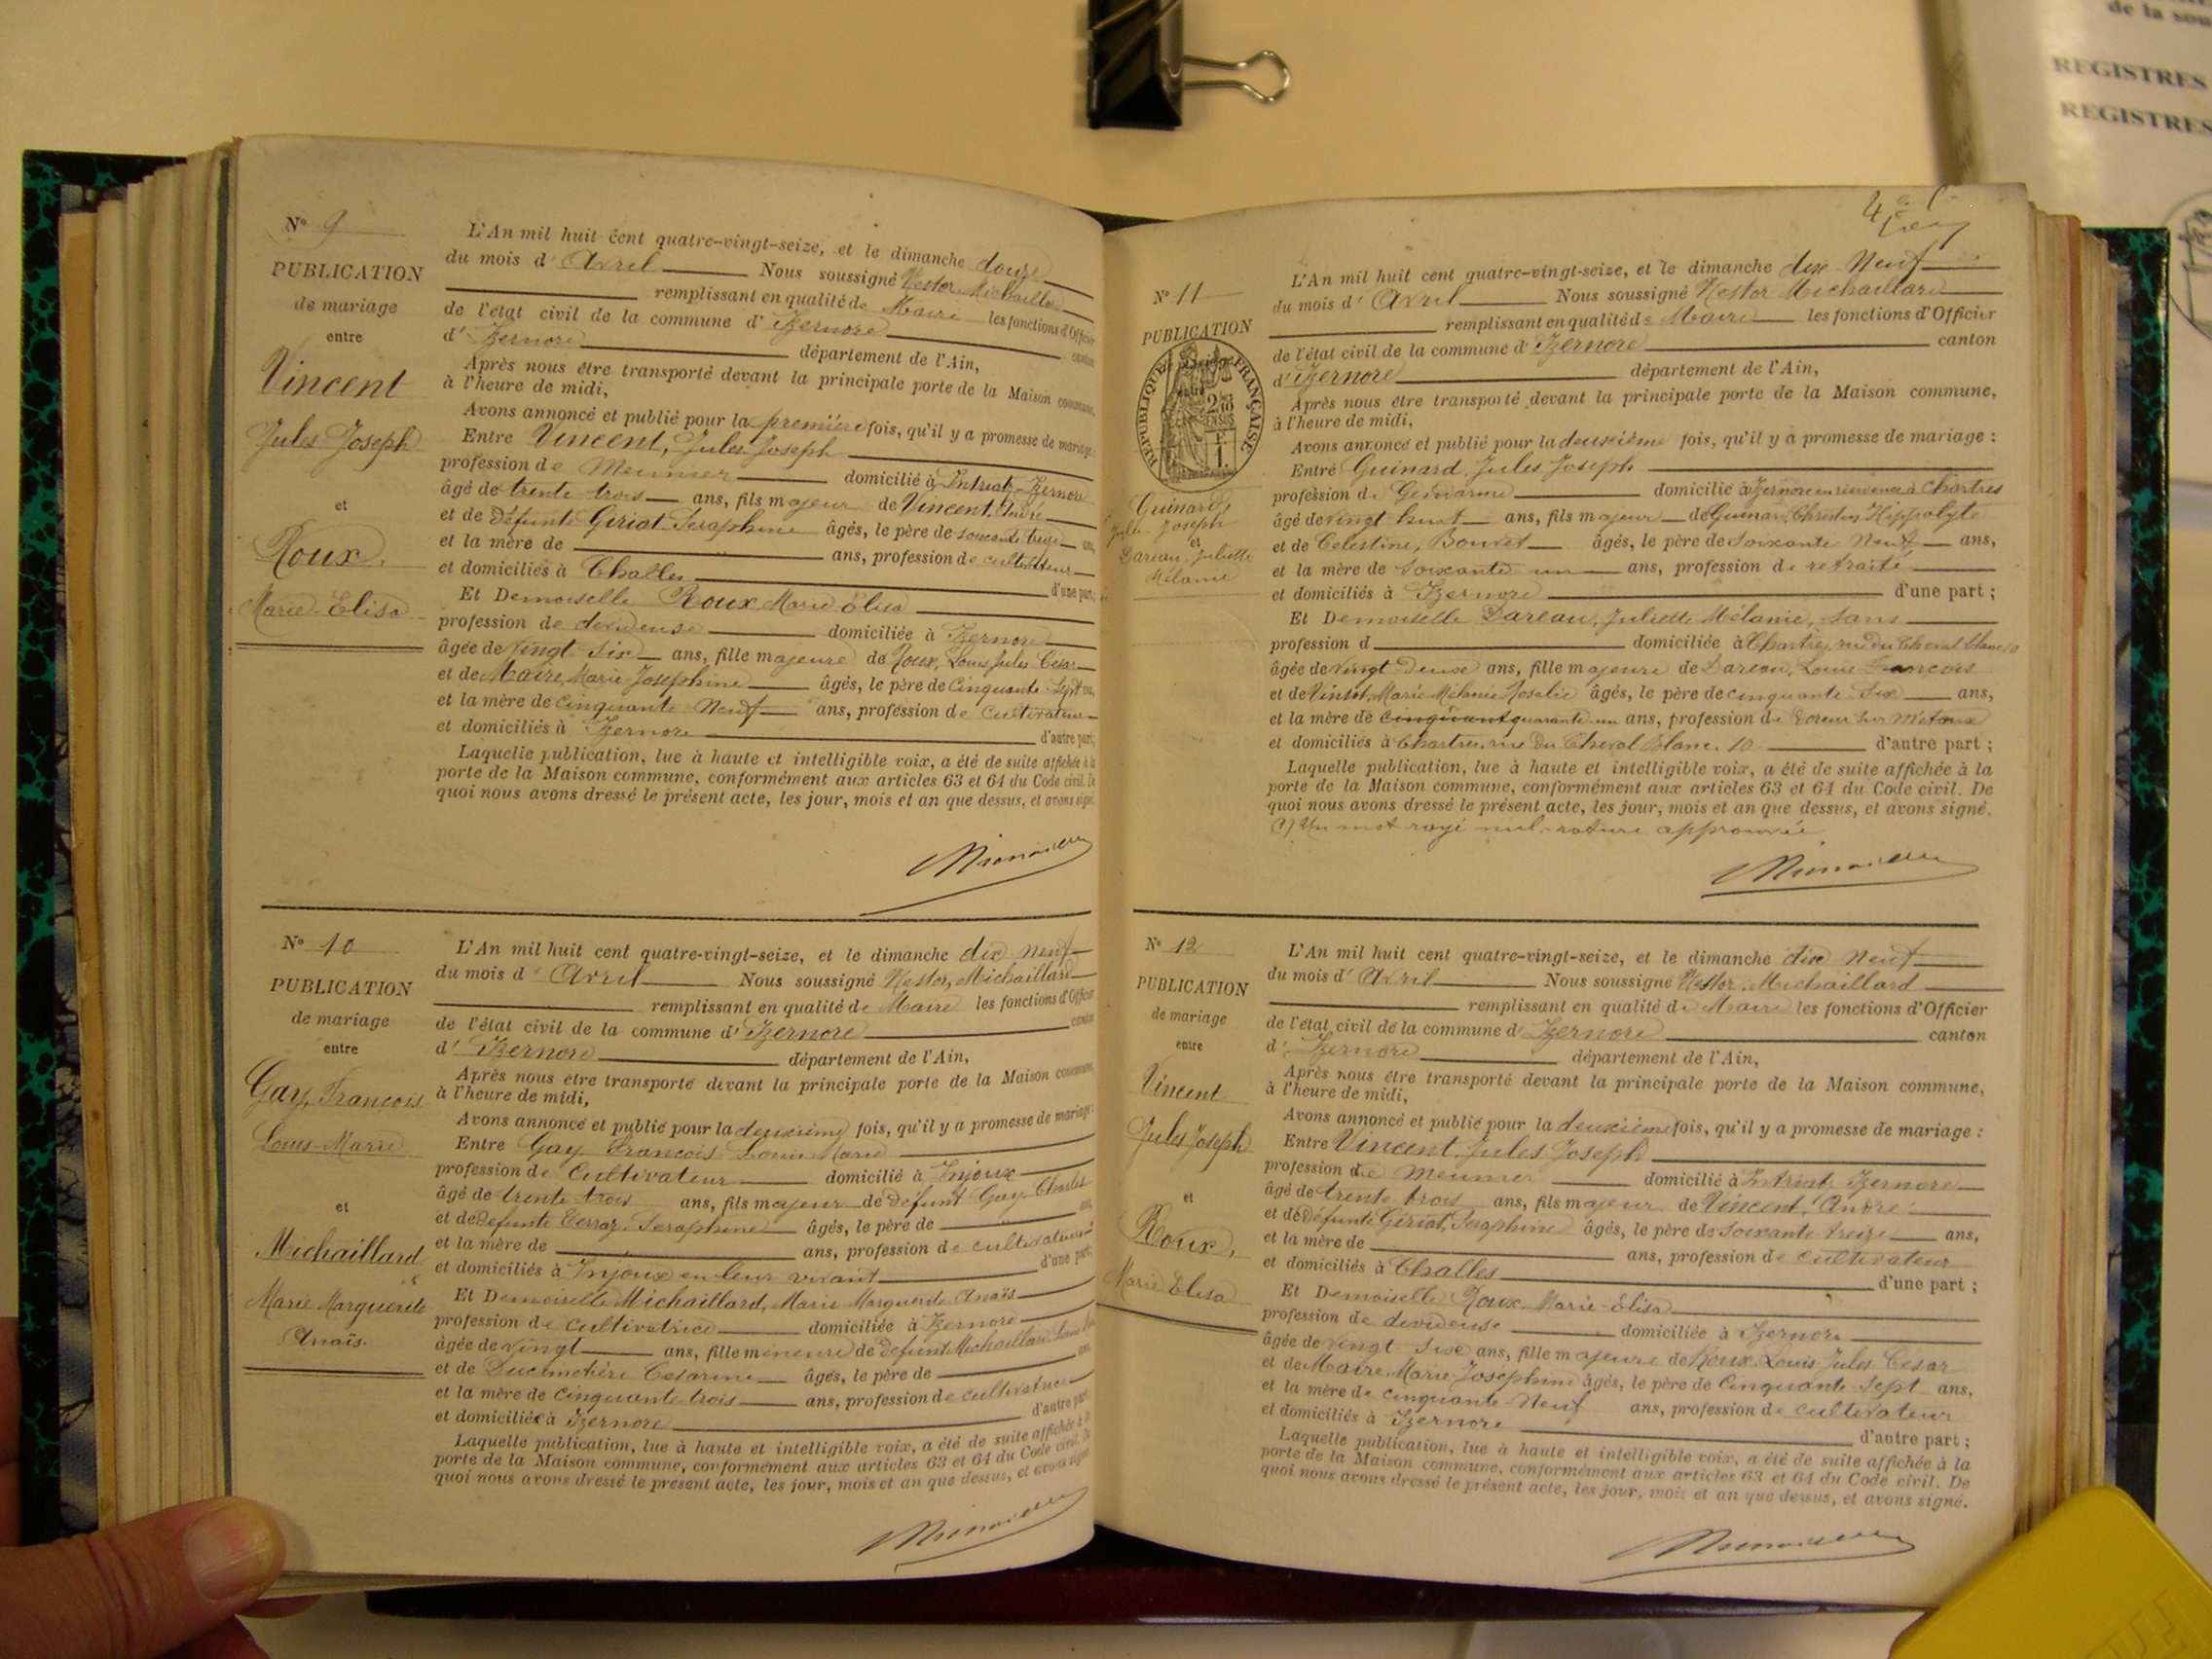 N° 9
PUBLICATION
de mariage
entre
Vincent
Jules Joseph
et
Roux,
Marie-Elisa
L'An mil huit cent quatre-vingt-seize, et le dimanche douze
du mois d' Avril Nous soussigné Nestor Michaillard
remplissant en qualité de Maire les fonctions d'Officier
de l'état civil de la commune d' Izernore canton
d' Izernore département de l'Ain,
Après nous être transporté devant la principale porte de la Maison commune,
à l'heure de midi,
Avons annoncé et publié pour la première fois, qu'il y a promesse de mariage:
Entre Vincent, Jules Joseph
profession de Meunier domicilié à Intriat, Izernore
âgé de trente trois ans, fils majeur de Vincent, André
et de Défunte Gériat Seraphine âgés, le père de soixante treize ans,
et la mère de ans, profession de cultivateur
et domiciliés à Challes d'une part;
Et Demoiselle Roux Marie Elisa
profession de devideuse domiciliée à Izernore
âgée de vingt six ans, fille majeure de Roux, Louis Jules César
et de Maire, Marie Josephine âgés, le père de Cinquante Sept ans,
et la mère de Cinquante Neuf ans, profession de Cultivateur
et domiciliés à Izernore d'autre part;
Laquelle publication, lue à haute et intelligible voix, a été de suite affichée à la
porte de la Maison commune, conformément aux articles 63 et 64 du Code civil. De
quoi nous avons dressé le présent acte, les jour, mois et an que dessus, et avons signé.
N° 10
PUBLICATION
de mariage
entre
Gay, François
Louis-Marie
et
Michaillard
Marie Marguerite
Anaïs.
L'An mil huit cent quatre-vingt-seize, et le dimanche dix neuf
du mois d' Avril Nous soussigné Nestor, Michaillard
remplissant en qualité de Maire les fonctions d'Officier
de l'état civil de la commune d' Izernore canton
d' Izernore département de l'Ain,
Après nous être transporté devant la principale porte de la Maison commune,
à l'heure de midi,
Avons annoncé et publié pour la deuxième fois, qu'il y a promesse de mariage:
Entre Gay François Louis Marie
profession de Cultivateur domicilié à Injoux
âgé de trente trois ans, fils majeur de défunt Gay Charles
et de défunte Terraz, Seraphine âgés, le père de ans,
et la mère de ans, profession de cultivateurs
et domiciliés à Injoux en leur vivant d'une part;
Et Demoiselle Michaillard, Marie Marguerite Anaïs
profession de Cultivatrice domiciliée à Izernore
âgée de vingt ans, fille mineure de défunt Michaillard
et de Ducimetière Césarine âgés, le père de ans,
et la mère de cinquante trois ans, profession de cultivatrice
et domiciliée à Izernore d'autre part;
Laquelle publication, lue à haute et intelligible voix, a été de suite affichée à la
porte de la Maison commune, conformément aux articles 63 et 64 du Code civil. De
quoi nous avons dressé le présent acte, les jour, mois et an que dessus, et avons signé
N° 11
PUBLICATION
REPUBLIQUE FRANÇAISE
Guinard,
Jules Joseph
et
Dareau, Juliette
Mélanie
L'An mil huit cent quatre-vingt-seize, et le dimanche dix Neuf
du mois d' Avril Nous soussigné Nestor Michaillard
remplissant en qualité de Maire les fonctions d'Officier
de l'état civil de la commune d' Izernore canton
d' Izernore département de l'Ain,
Après nous être transporté devant la principale porte de la Maison commune,
à l'heure de midi,
Avons annoncé et publié pour la deuxième fois, qu'il y a promesse de mariage :
Entre Guinard, Jules Joseph
profession de Gendarme domicilié à Izernore en résidence à Chartres
âgé de vingt huit ans, fils majeur de Guinard, Christin Hippolyte
et de Celestine, Bouvet âgés, le père de soixante Neuf ans,
et la mère de soixante un ans, profession de retraité
et domiciliés à Izernore d'une part ;
Et Demoiselle Dareau, Juliette Mélanie, Sans
profession d domiciliée à Chartres, rue du Cheval blanc 10
âgée de vingt Deux ans, fille majeure de Dareau, Louis François
et de Vincent, Marie Mélanie Rosalie âgés, le père de cinquante Six ans,
et la mère de quarante un ans, profession de Doreur sur Métaux
et domiciliés à Chartres, rue Du Cheval Blanc, 10 d'autre part ;
Laquelle publication, lue à haute et intelligible voix, a été de suite affichée à la
porte de la Maison commune, conformément aux articles 63 et 64 du Code civil. De
quoi nous avons dressé le présent acte, les jour, mois et an que dessus, et avons signé.
(1) Un mot rayé nul rature approuvée
N° 12
PUBLICATION
de mariage
entre
Vincent
Jules Joseph
et
Roux,
Marie Elisa
L'An mil huit cent quatre-vingt-seize, et le dimanche dix Neuf
du mois d' Avril Nous soussigné Nestor. Michaillard
remplissant en qualité de Maire les fonctions d'Officier
de l'état civil de la commune d' Izernore canton
d' Izernore département de l'Ain,
Après nous être transporté devant la principale porte de la Maison commune,
à l'heure de midi,
Avons annoncé et publié pour la deuxième fois, qu'il y a promesse de mariage :
Entre Vincent, Jules Joseph
profession de meunier domicilié à Intriat, Izernore
âgé de trente trois ans, fils majeur de Vincent, André
et de défunte Gériat, Seraphine âgés, le père de Soixante treize ans,
et la mère de ans, profession de Cultivateur
et domiciliés à Challes d'une part ;
Et Demoiselle Roux Marie-Elisa
profession de devideuse domiciliée à Izernore
âgée de vingt Six ans, fille majeure de Roux Louis Jules César
et de Maire, Marie Josephine âgés, le père de Cinquante Sept ans,
et la mère de cinquante Neuf ans, profession de cultivateur
et domiciliés à Izernore d'autre part ;
Laquelle publication, lue à haute et intelligible voix, a été de suite affichée à la
porte de la Maison commune, conformément aux articles 63 et 64 du Code civil. De
quoi nous avons dressé le présent acte, les jour, mois et an que dessus, et avons signé.
de la sou
REGISTRES
REGISTRES